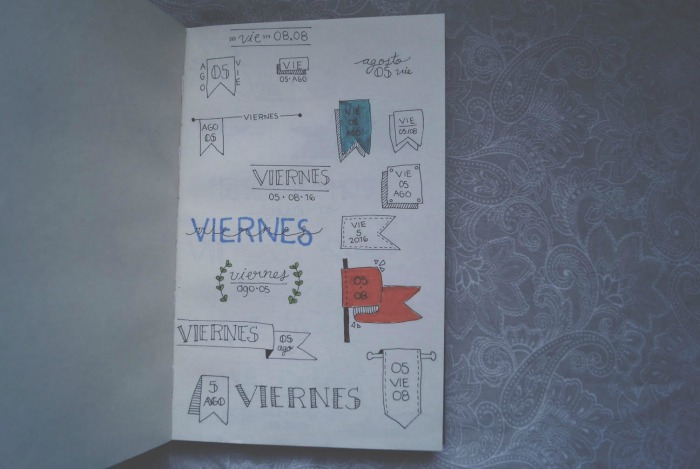 vie 08.08
AGO
05
VIE
VIE
05·AGO
agosto
05 vie
VIERNES
AGO
05
VIE
05
AGO
VIE
05·08
VIERNES
05·08·16
VIE
05
AGO
VIERNES
viernes
VIE
5
2016
viernes
ago·05
05
·
08
VIERNES
05
ago
5
AGO
VIERNES
05
VIE
08